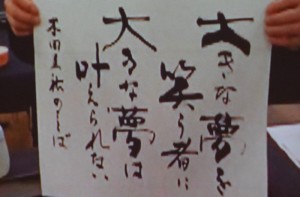 大きな夢を
笑う者に
大きな夢は
叶えられない
本田 のことば